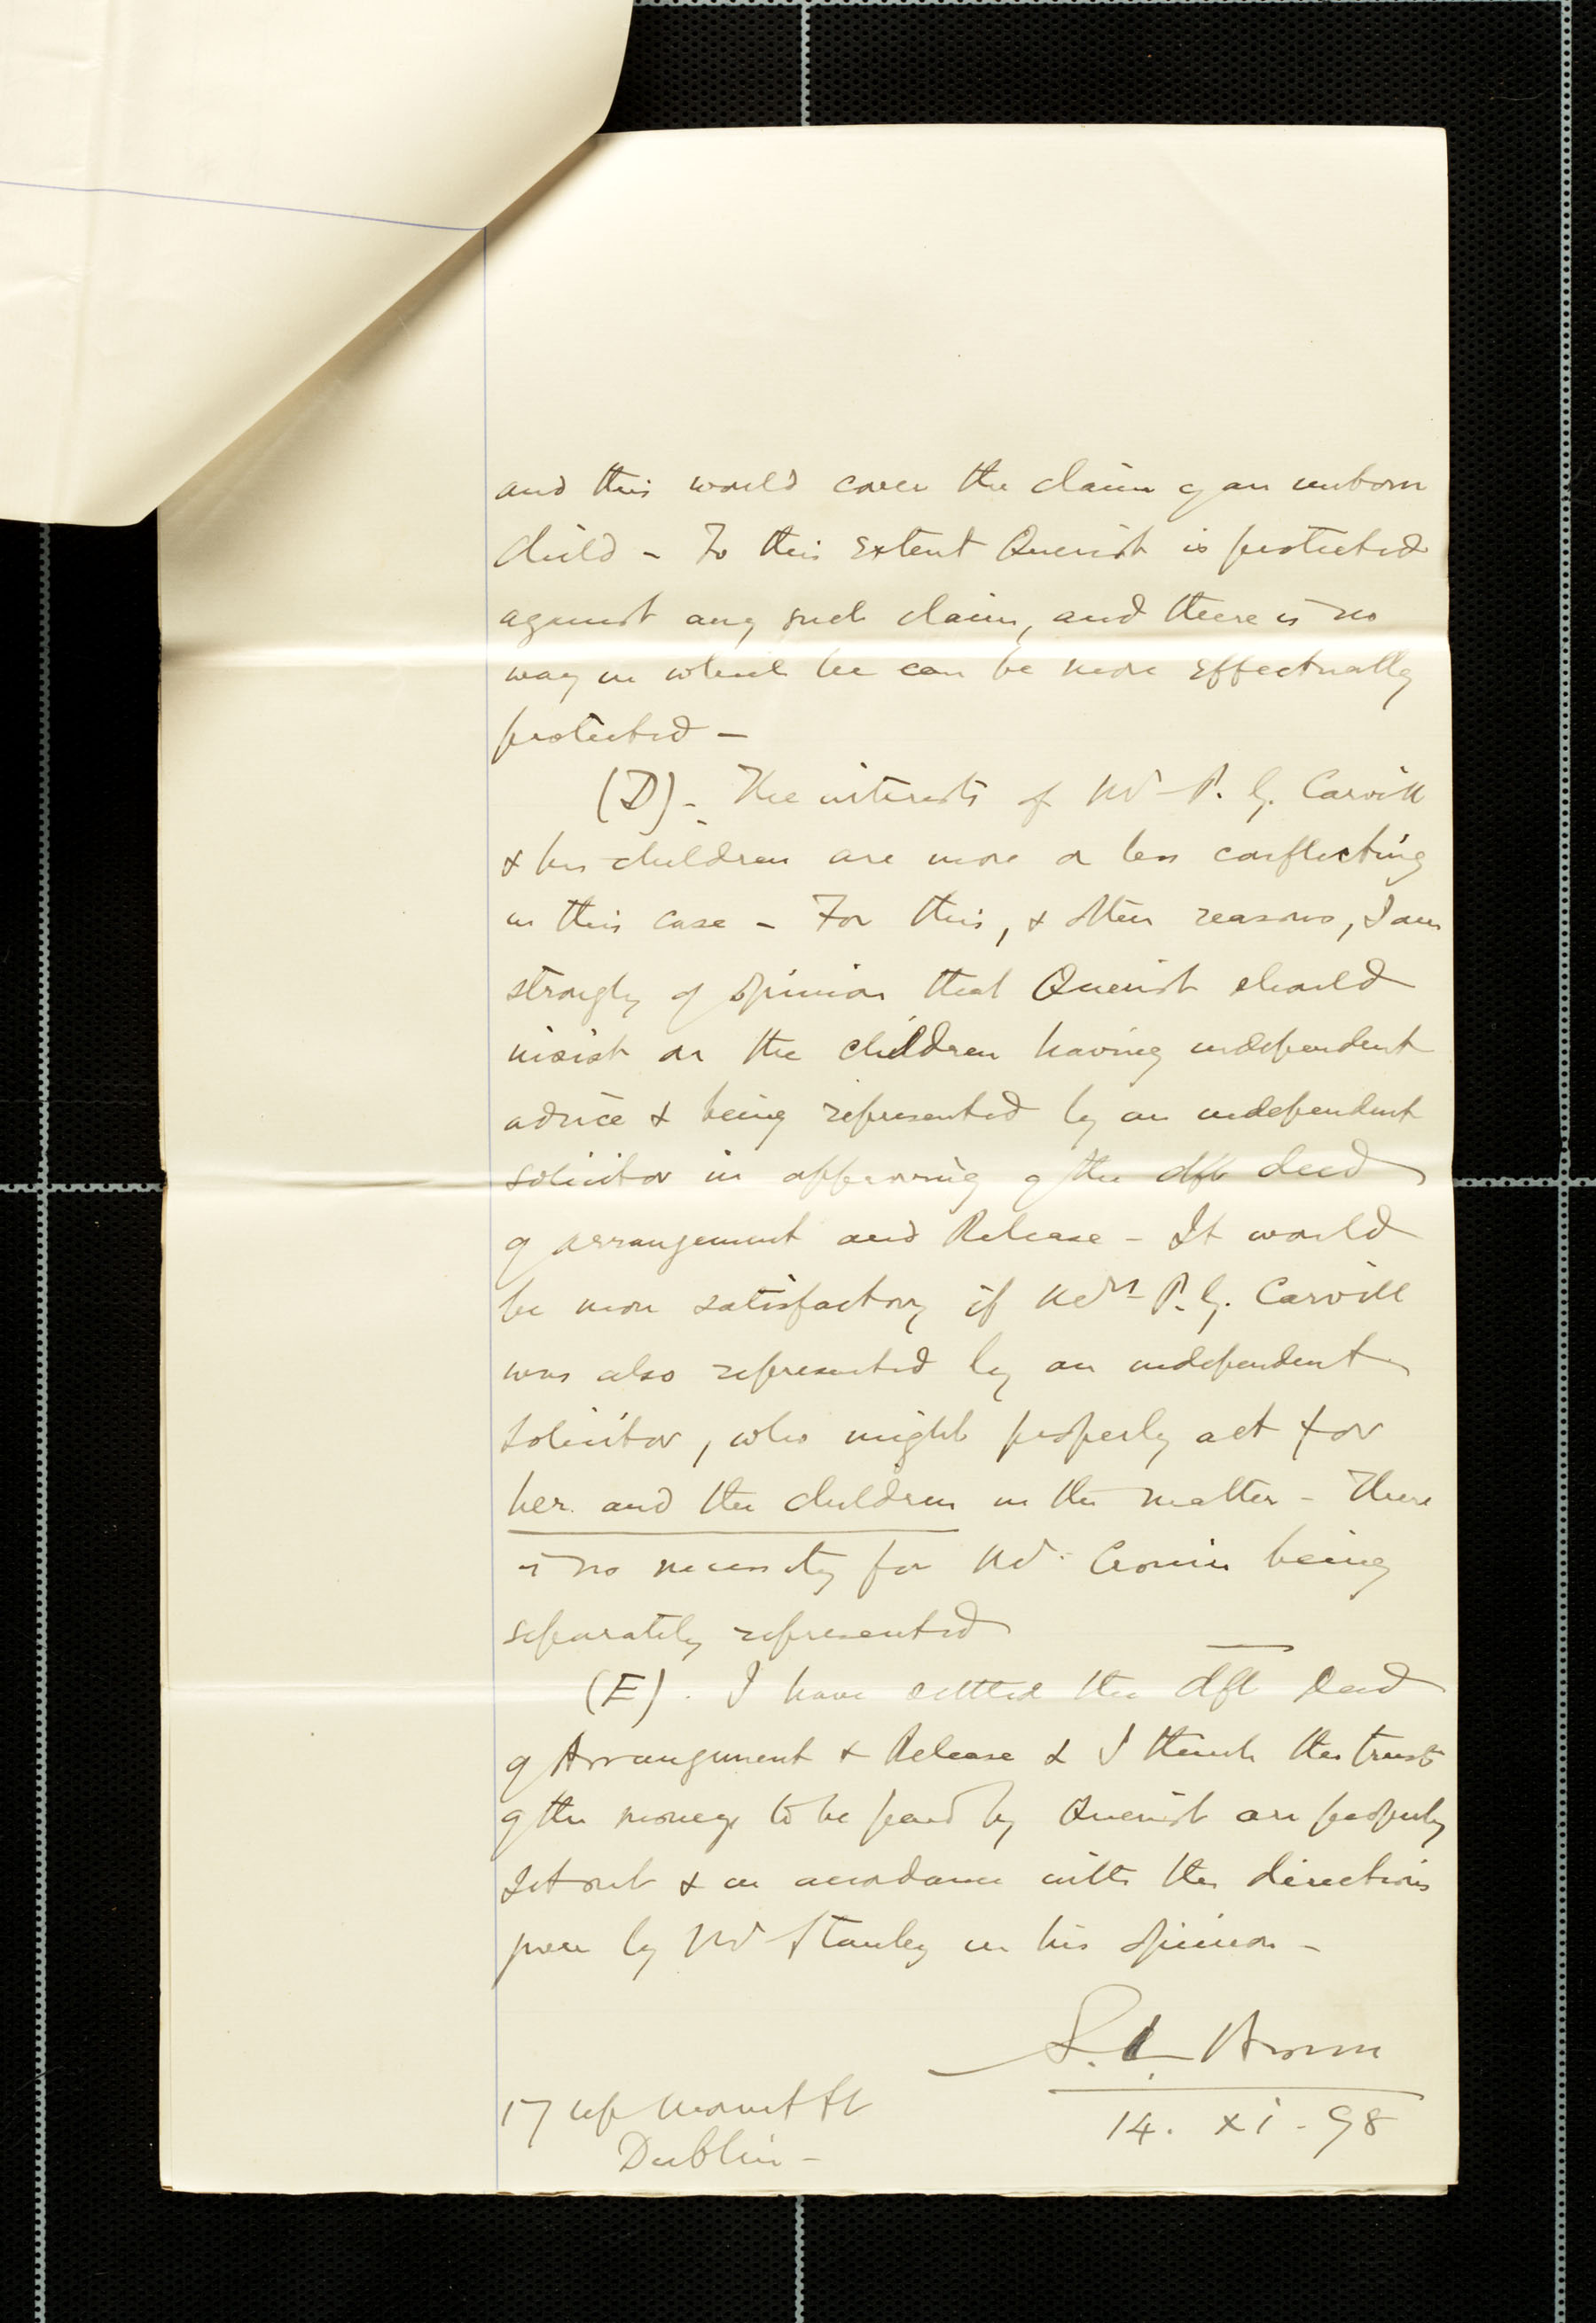 and this would cover the claim of an unborn
child – To this extent Querist is protected
against any such claim, and there is no
way in which he can be more effectually
protected –
(D). The interests of Mr P. G. Carvill
& his children are more or less conflicting
in this case – For this, & other reasons, I am
strongly of opinion that Querist should
insist on the children having independent
advice & being represented by an independent
solicitor in approving of the dft deed
of arrangement and Release – It would
be more satisfactory if Mrs P. G. Carvill
was also represented by an independent
solicitor, who might properly act for
her and the children in the matter – There
is no necessity for Mr Cronin being
separately represented
(E). I have settled the dft Deed
of Arrangement & Release & I think the trusts
of the money to be paid by Querist are properly
set out & in accordance with the directions
given by Mr Stanley in his opinion –
S. L. Brown
14. xi – 98
17 up Mount St
Dublin –